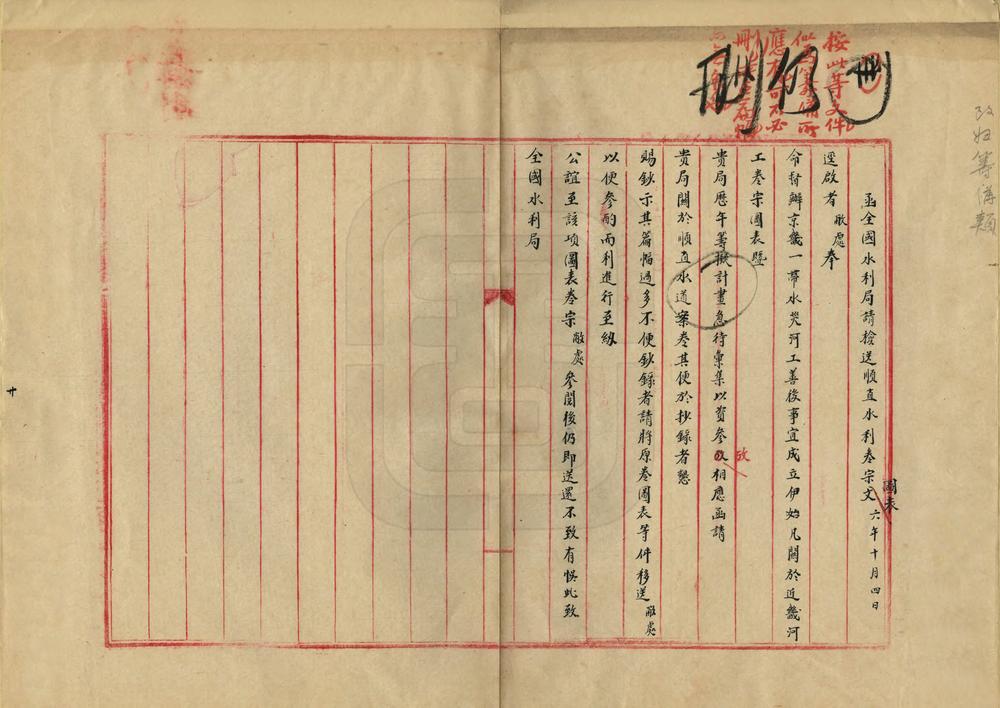 函全國水利局請檢送順直水利卷宗文 六年十月四日
圖表
逕啟者敝處奉
命督辦京畿一帶水災河工善後事宜成立伊始凡關於近畿河
工卷宗圖表暨
貴局歷年籌擬計畫急待彙集以資參攷相應函請
攷
貴局關於順直水道案卷其便於抄錄者懇
賜鈔示其篇幅過多不便鈔錄者請將原卷圖表等件移送敝處
以便參酌而利進行至紉
公誼至該項圖表卷宗敝處參閱後仍即送還不致有悞此致
全國水利局
按此等文件
刪
卄